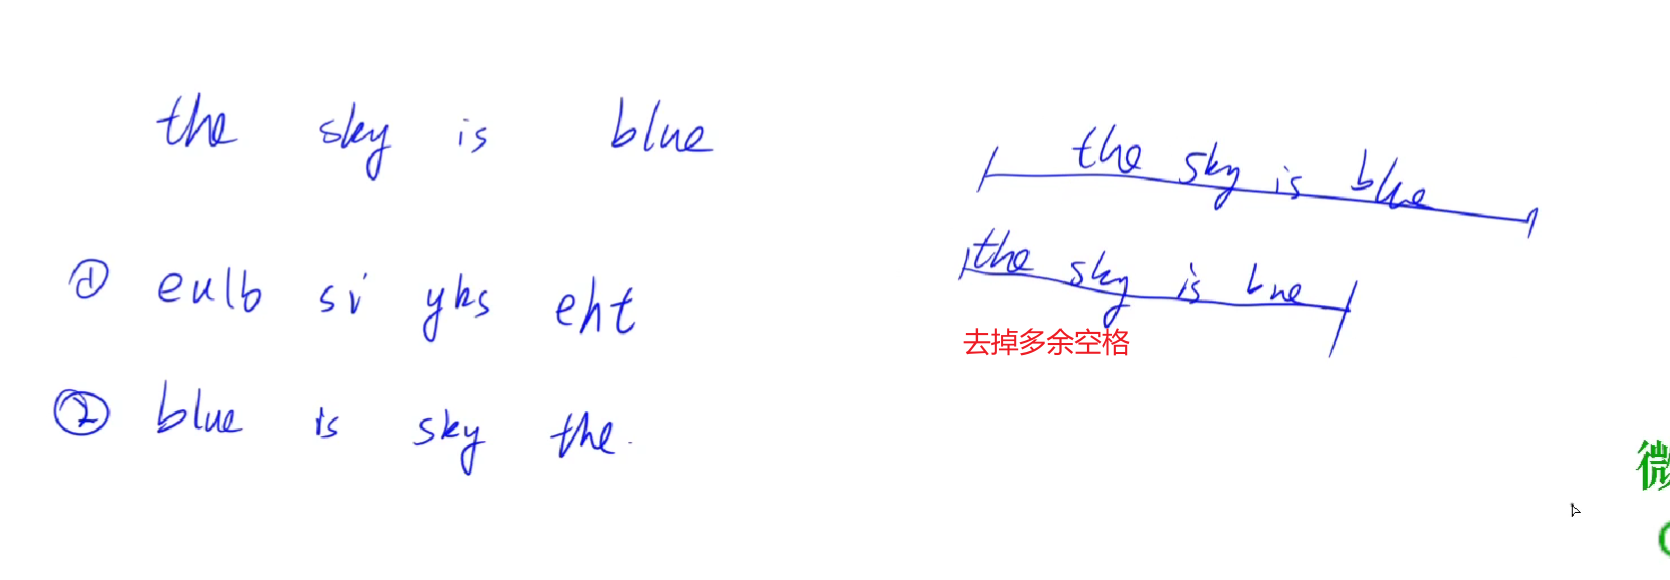 the sky is blue
① eulb si yks eht
② blue is sky the.
the sky is blue
the sky is
去掉多余空格
微